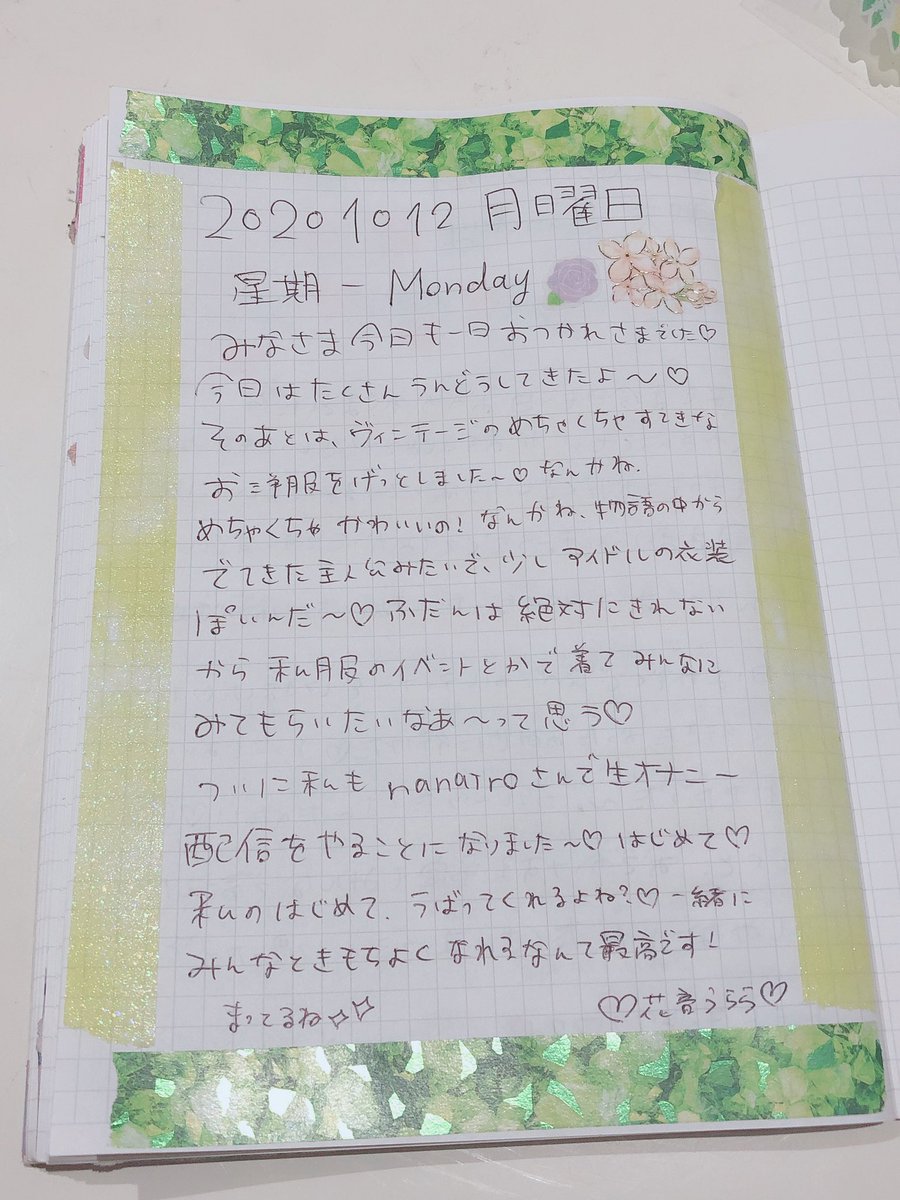 20201012 月曜日
星期 - Monday
みなさま今日も一日おつかれさまでした♡
今日はたくさんうんどうしてきたよ〜♡
そのあとは、ヴィンテージのめちゃくちゃすてきな
お洋服をげっとしました〜♡なんかね、
めちゃくちゃかわいいの!なんかね、物語の中から
でてきた主人公みたいで、少しアイドルの衣装
ぽいんだ〜♡ふだんは絶対にきれない
から私服のイベントとかで着てみんなに
みてもらいたいなあ〜って思う♡
ついに私もnanairoさんで生オナニー
配信をやることになりました〜♡はじめて♡
私のはじめて、うばってくれるよね?♡一緒に
みんなときもちよくなれるなんて最高です!
まってるね☆☆
♡花音うらら♡